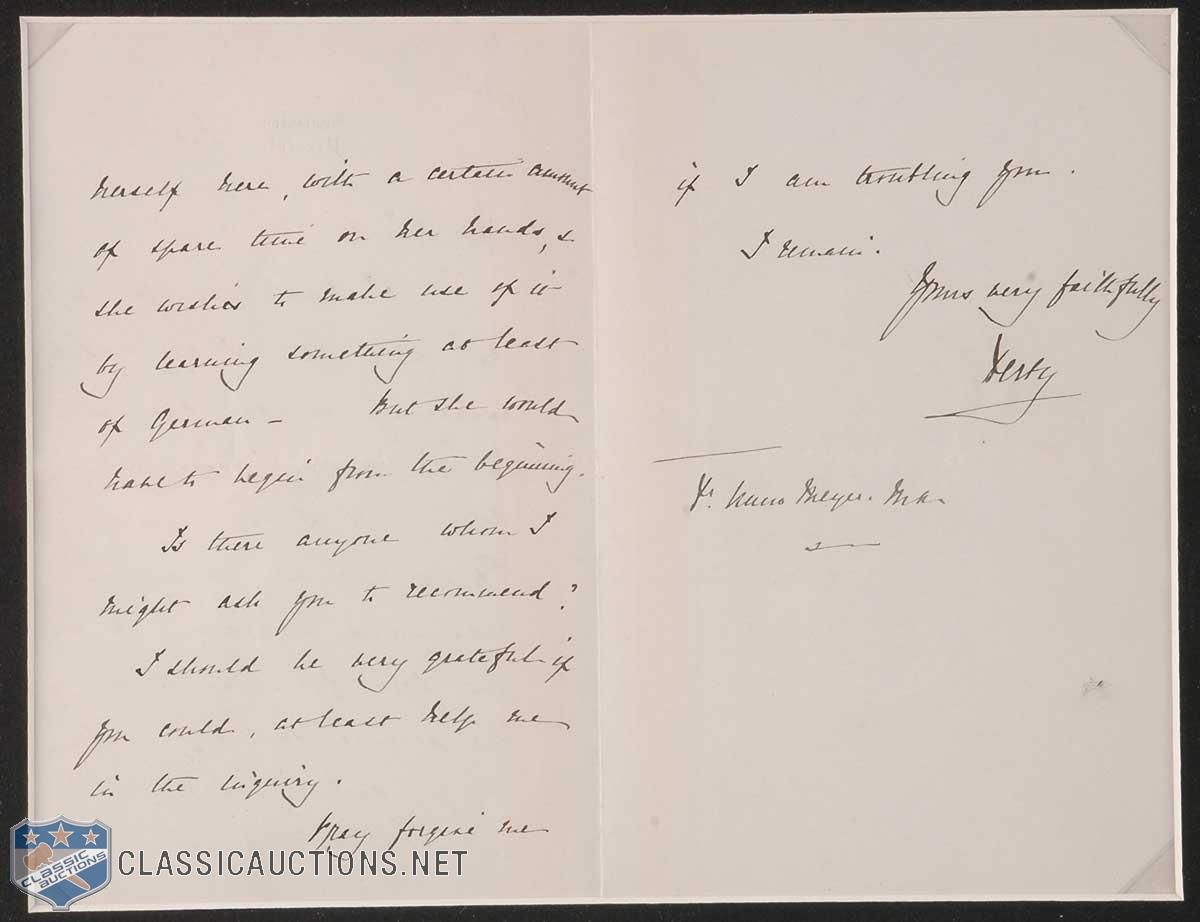 herself here, with a certain amount
of spare time on her hands, &
she wishes to make use of it
by learning something at least
of German – But she would
have to begin from the beginning.
Is there anyone whom I
might ask you to recommend?
I should be very grateful if
you could, at least help me
in the inquiry.
Pray forgive me
if I am troubling you.
I remain.
Yours very faithfully
Derby
Dr. Kuno Meyer. M.A.
CLASSIC
AUCTIONS
CLASSICAUCTIONS.NET